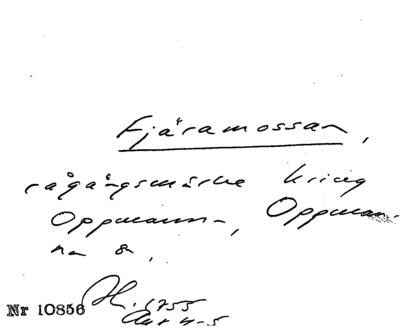 Fjäramossan,
rågångsmärke kring
Oppmanna, Oppman-
na 8.
Nr 10856 H. 1755
Akt 4-5